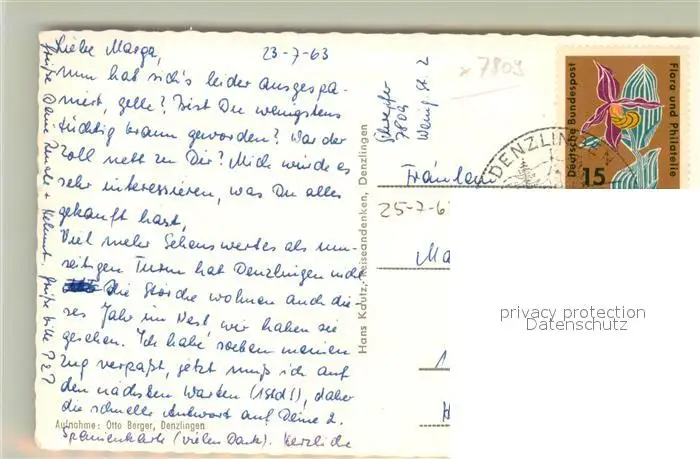 Liebe Marga, 23-7-63
nun hat sich's leider ausgespa-
niert, gelle? Bist Du wenigstens
tüchtig braun geworden? War der
Zoll nett zu Dir? Mich würde es
sehr interessieren, was Du alles
gekauft hast.
Viel mehr Sehenswertes als um-
seitigen Turm hat Denzlingen nicht
die Störche wohnen auch die-
ses Jahr im Nest, wir haben sie
gesehen. Ich habe soeben meinen
Zug verpaßt, jetzt muß ich auf
den nächsten warten (1 Std!), daher
die schnelle Antwort auf Deine 2.
Spanienkarte (vielen Dank). Herzliche
Grüße Deine Renate + Helmut.
Aufnahme: Otto Berger, Denzlingen
Hans Kautz, Reiseandenken, Denzlingen
7809
7809
Fräulein
25-7-6
Ma
DENZLINGEN
Deutsche Bundespost
15
Flora und Philatelie
privacy protection
Datenschutz